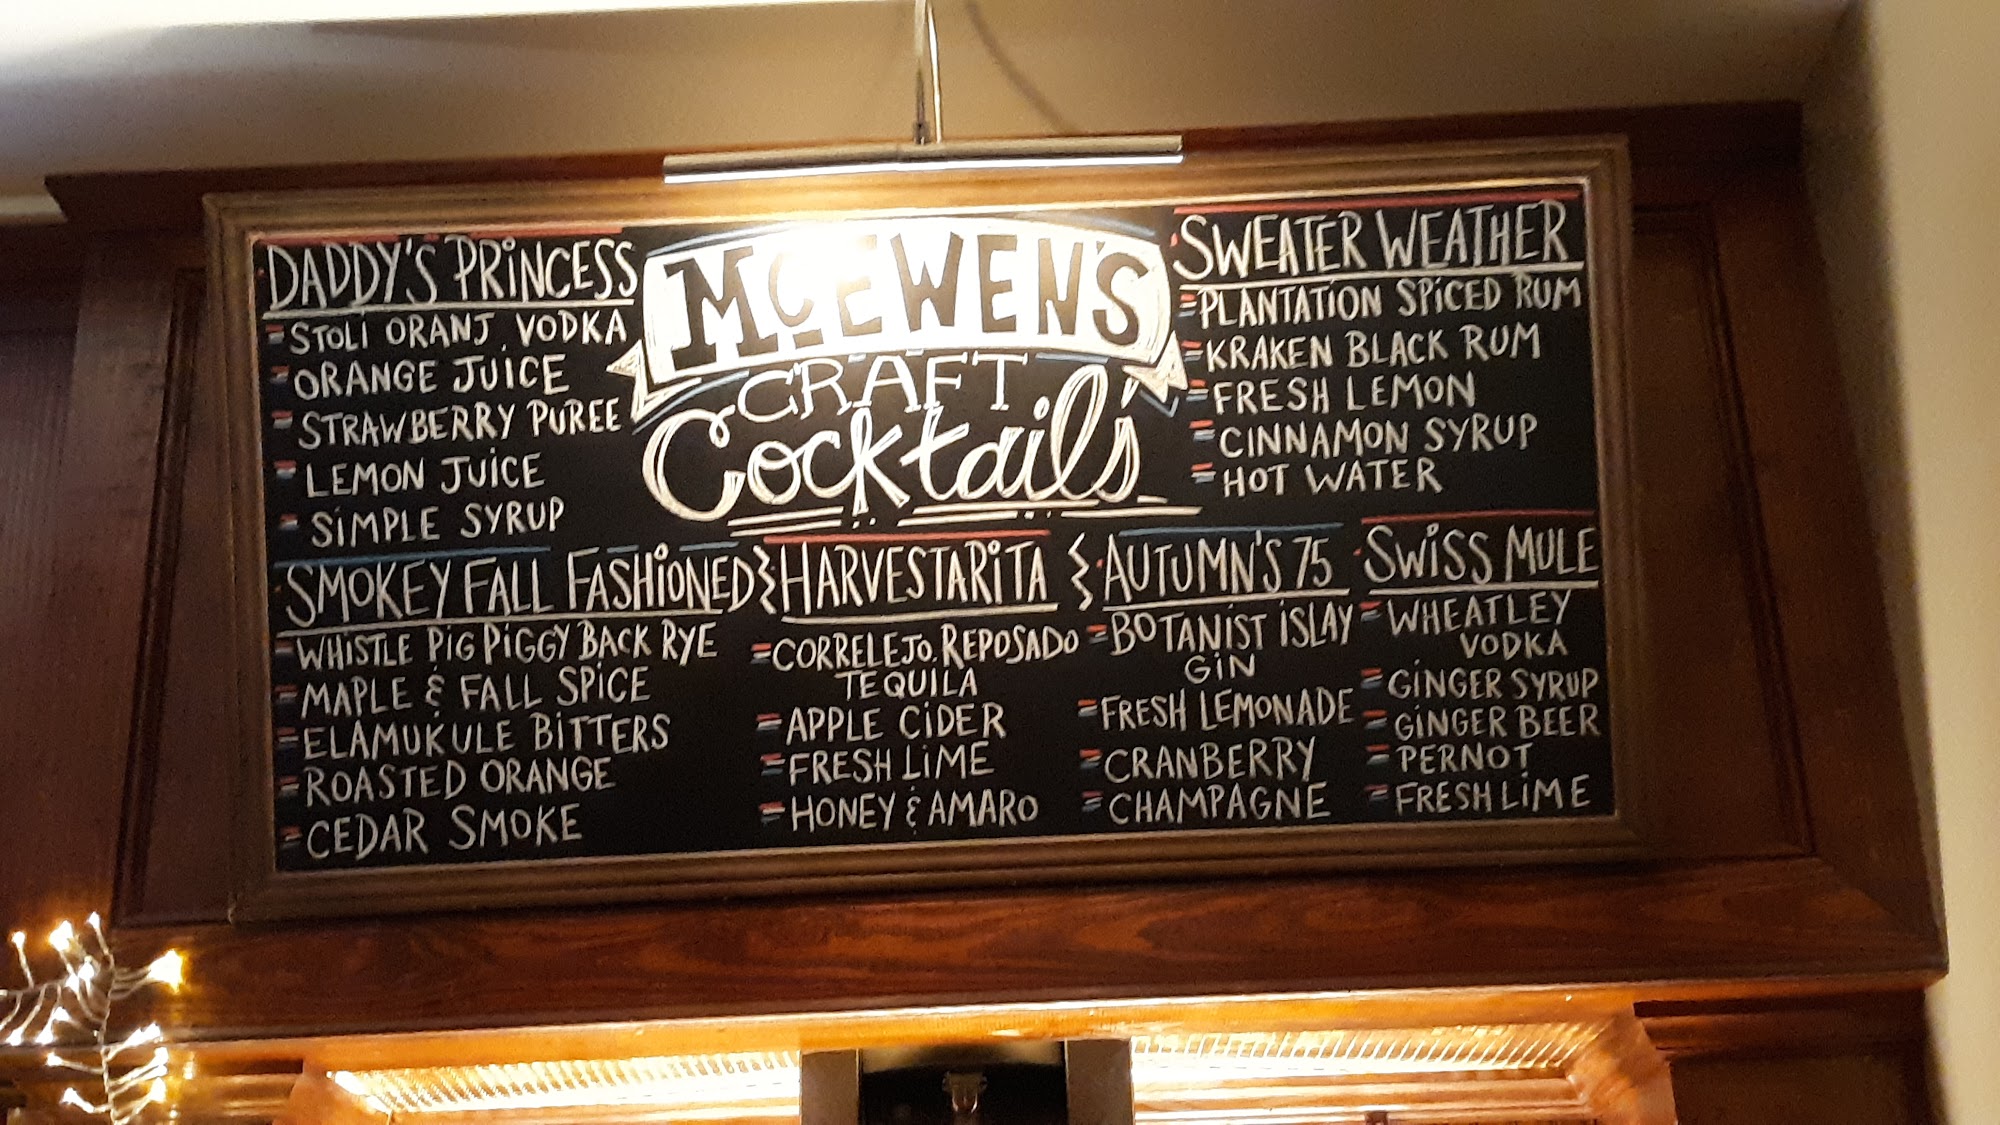 McEWEN'S
CRAFT
Cocktails
DADDY'S PRINCESS
STOLI ORANJ VODKA
ORANGE JUICE
STRAWBERRY PUREE
LEMON JUICE
SIMPLE SYRUP
SWEATER WEATHER
PLANTATION SPICED RUM
KRAKEN BLACK RUM
FRESH LEMON
CINNAMON SYRUP
HOT WATER
SMOKEY FALL FASHIONED
WHISTLE PIG PIGGY BACK RYE
MAPLE & FALL SPICE
ELAMUKULE BITTERS
ROASTED ORANGE
CEDAR SMOKE
HARVESTARITA
CORRELEJO REPOSADO
TEQUILA
APPLE CIDER
FRESH LIME
HONEY & AMARO
AUTUMN'S 75
BOTANIST ISLAY
GIN
FRESH LEMONADE
CRANBERRY
CHAMPAGNE
SWISS MULE
WHEATLEY
VODKA
GINGER SYRUP
GINGER BEER
PERNOT
FRESH LIME